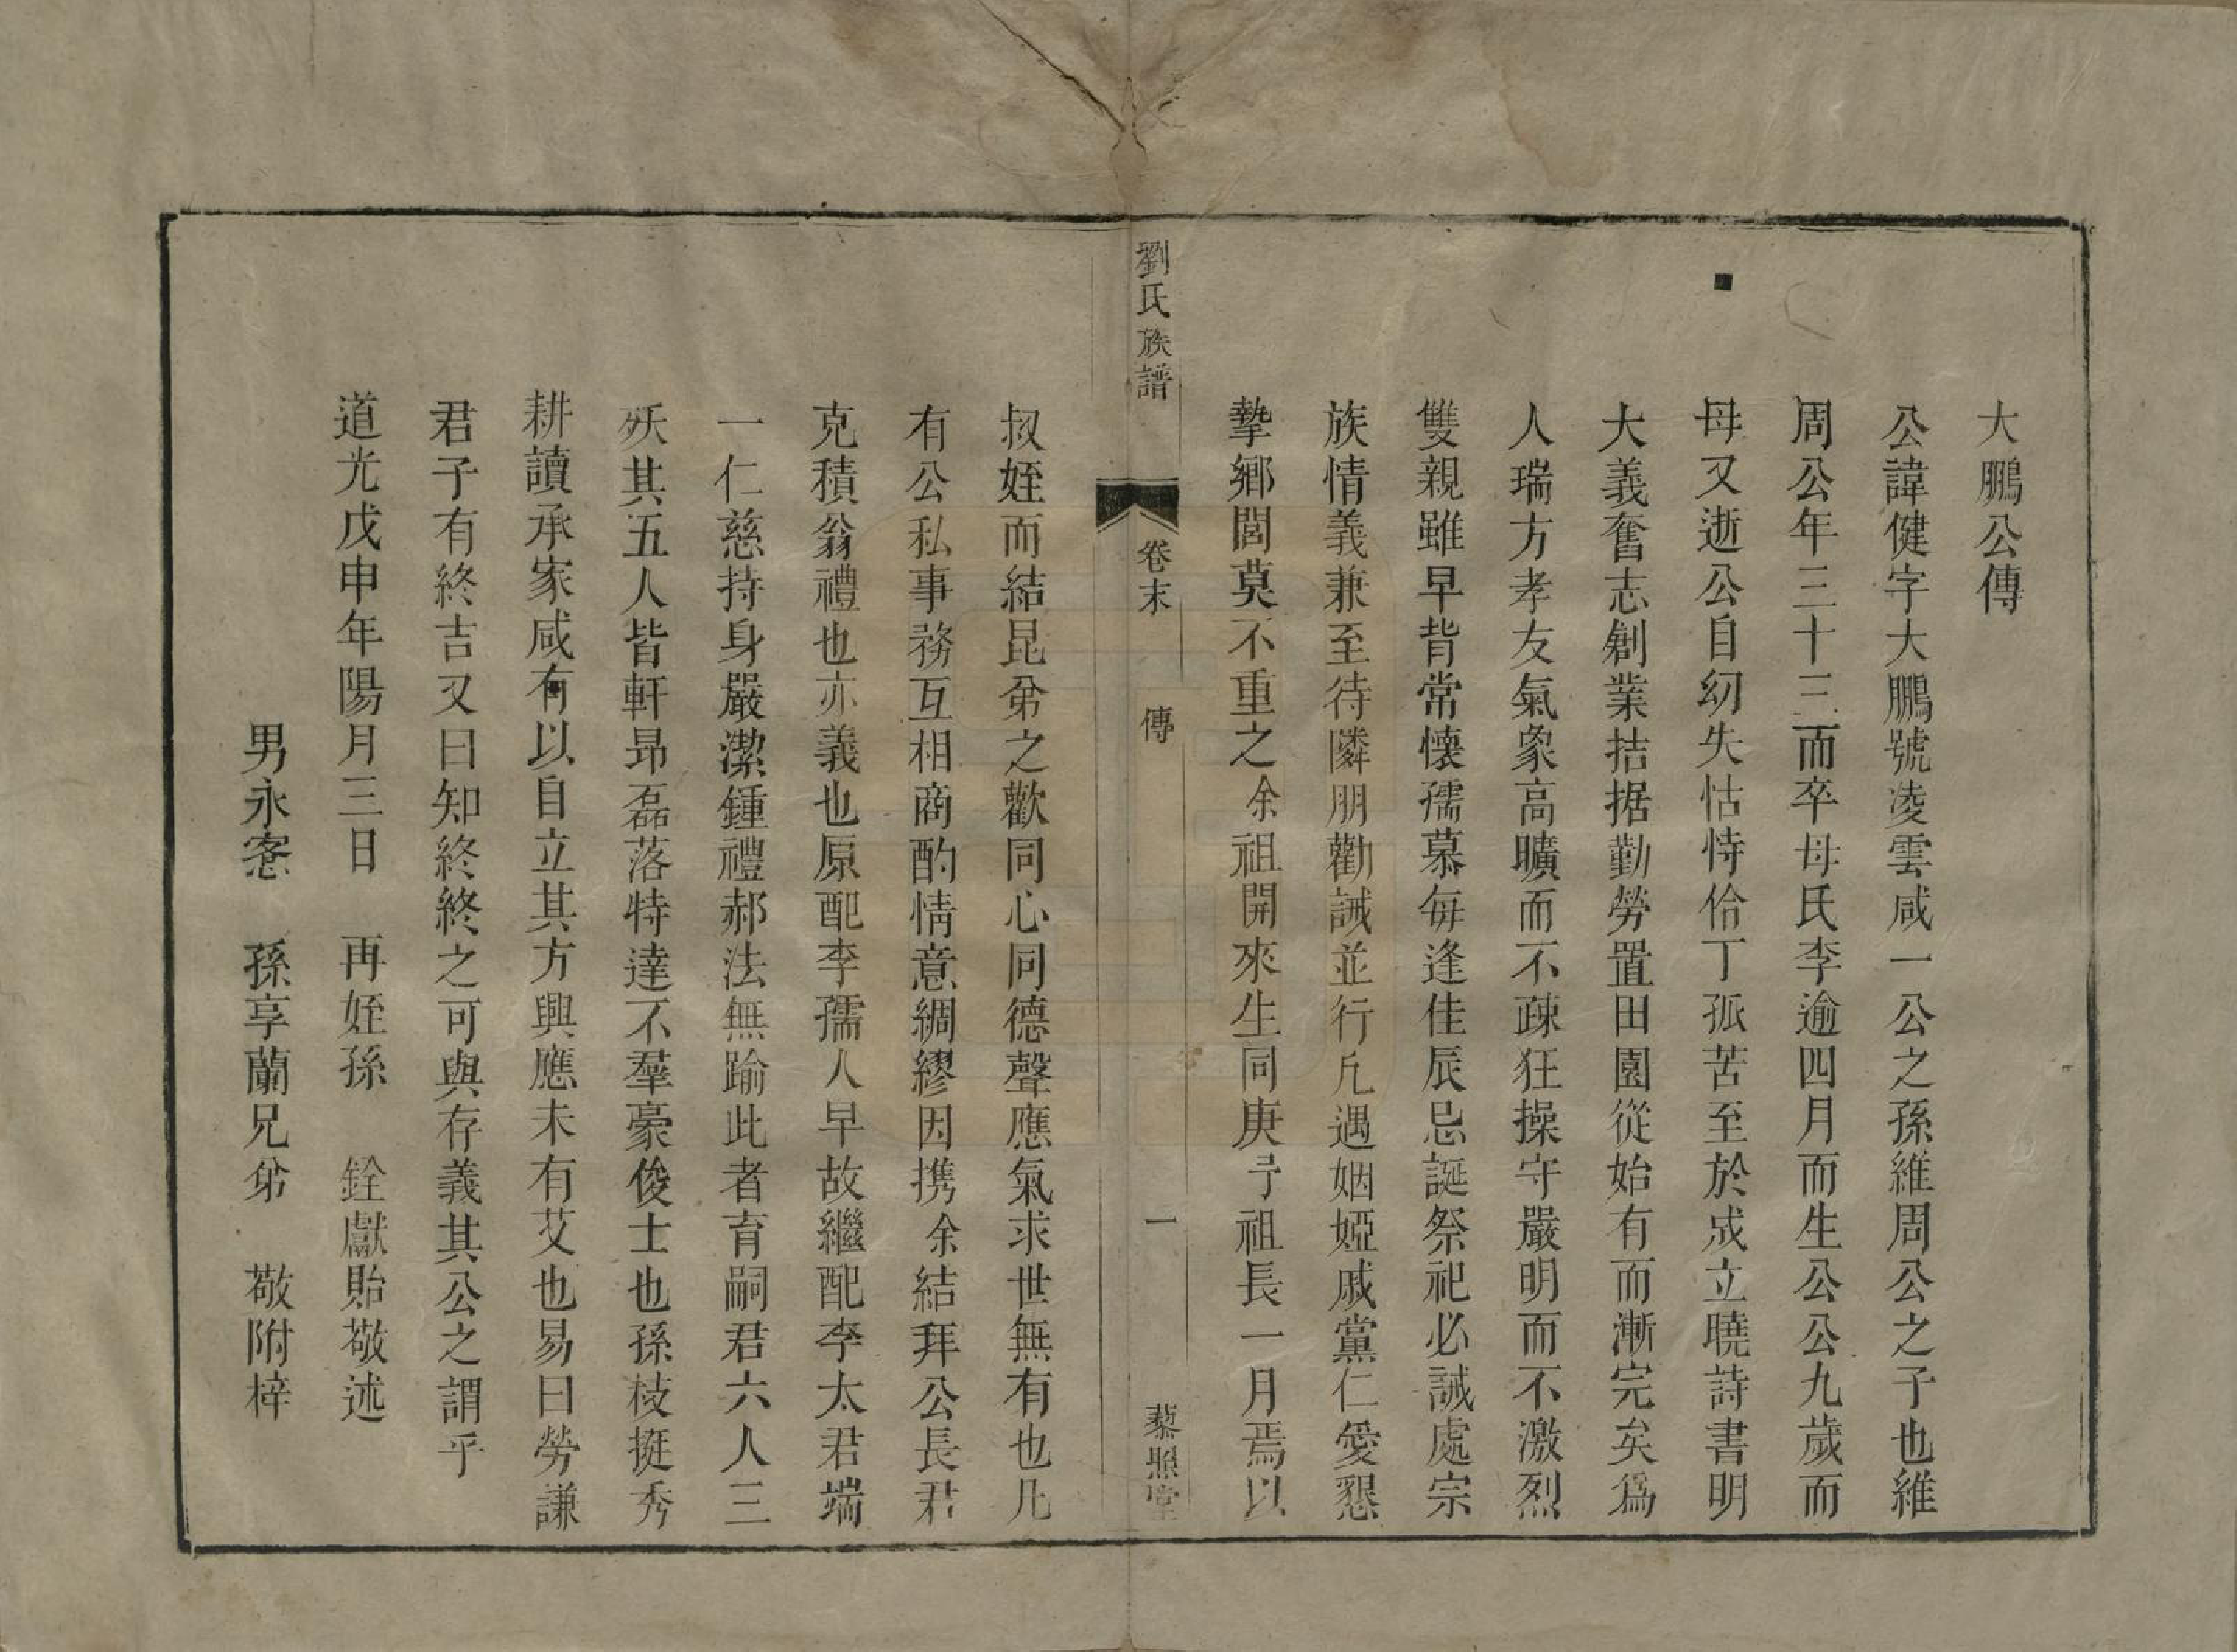 大鵬公傳
公諱健字大鵬號凌雲咸一公之孫維周公之子也維
周公年三十三而卒母氏李逾四月而生公公九歲而
母又逝公自幼失怙恃伶丁孤苦至於成立曉詩書明
大義奮志創業拮据勤勞置田園從始有而漸完矣爲
人瑞方孝友氣象高曠而不疎狂操守嚴明而不激烈
雙親雖早背常懷孺慕每逢佳辰忌誕祭祀必誠處宗
族情義兼至待隣朋勸誡並行凡遇姻婭戚黨仁愛懇
摯鄉閭莫不重之余祖開來生同庚予祖長一月焉以
劉氏族譜 卷末 傳 一 藜照堂
叔姪而結昆弟之歡同心同德聲應氣求世無有也凡
有公私事務互相商酌情意綢繆因携余結拜公長君
克積翁禮也亦義也原配李孺人早故繼配李太君端
一仁慈持身嚴潔鍾禮郝法無踰此者育嗣君六人三
殀其五人皆軒昂磊落特達不羣豪俊士也孫枝挺秀
耕讀承家咸有以自立其方興應未有艾也易曰勞謙
君子有終吉又曰知終終之可與存義其公之謂乎
道光戊申年陽月三日 再姪孫 銓獻貽敬述
男永窓 孫享蘭兄弟 敬附梓